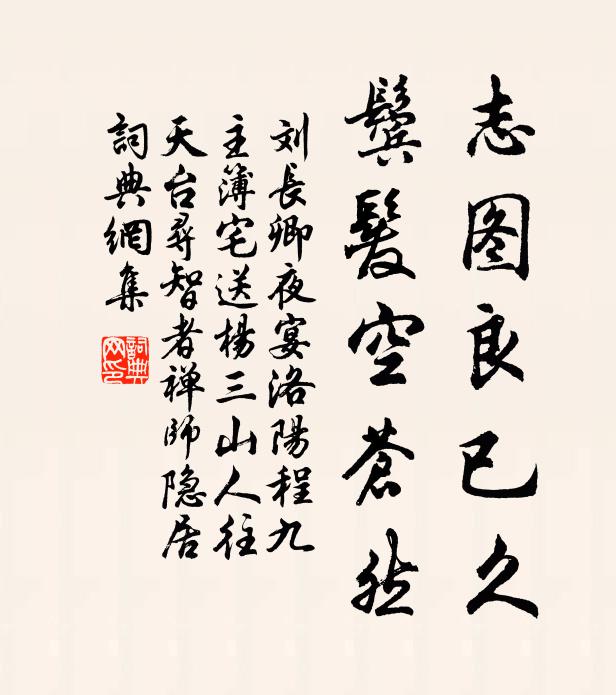 志图良已久
鬓髮空蒼然
刘長卿夜宴洛陽程九
主簿宅送楊三山人往
天台尋智者禅師隐居
詞典網集
詞典網印